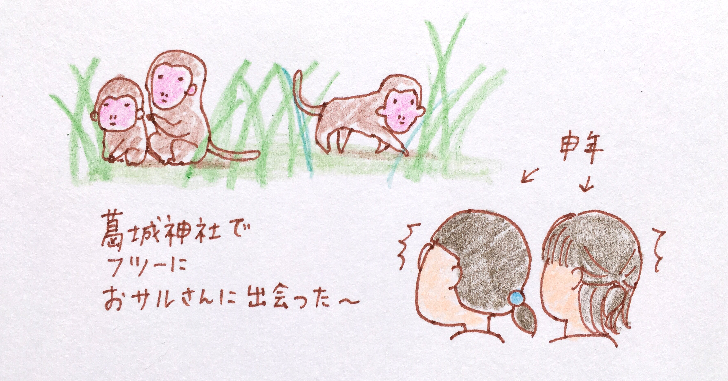 申年
葛城神社で
フツーに
おサルさんに出会った〜